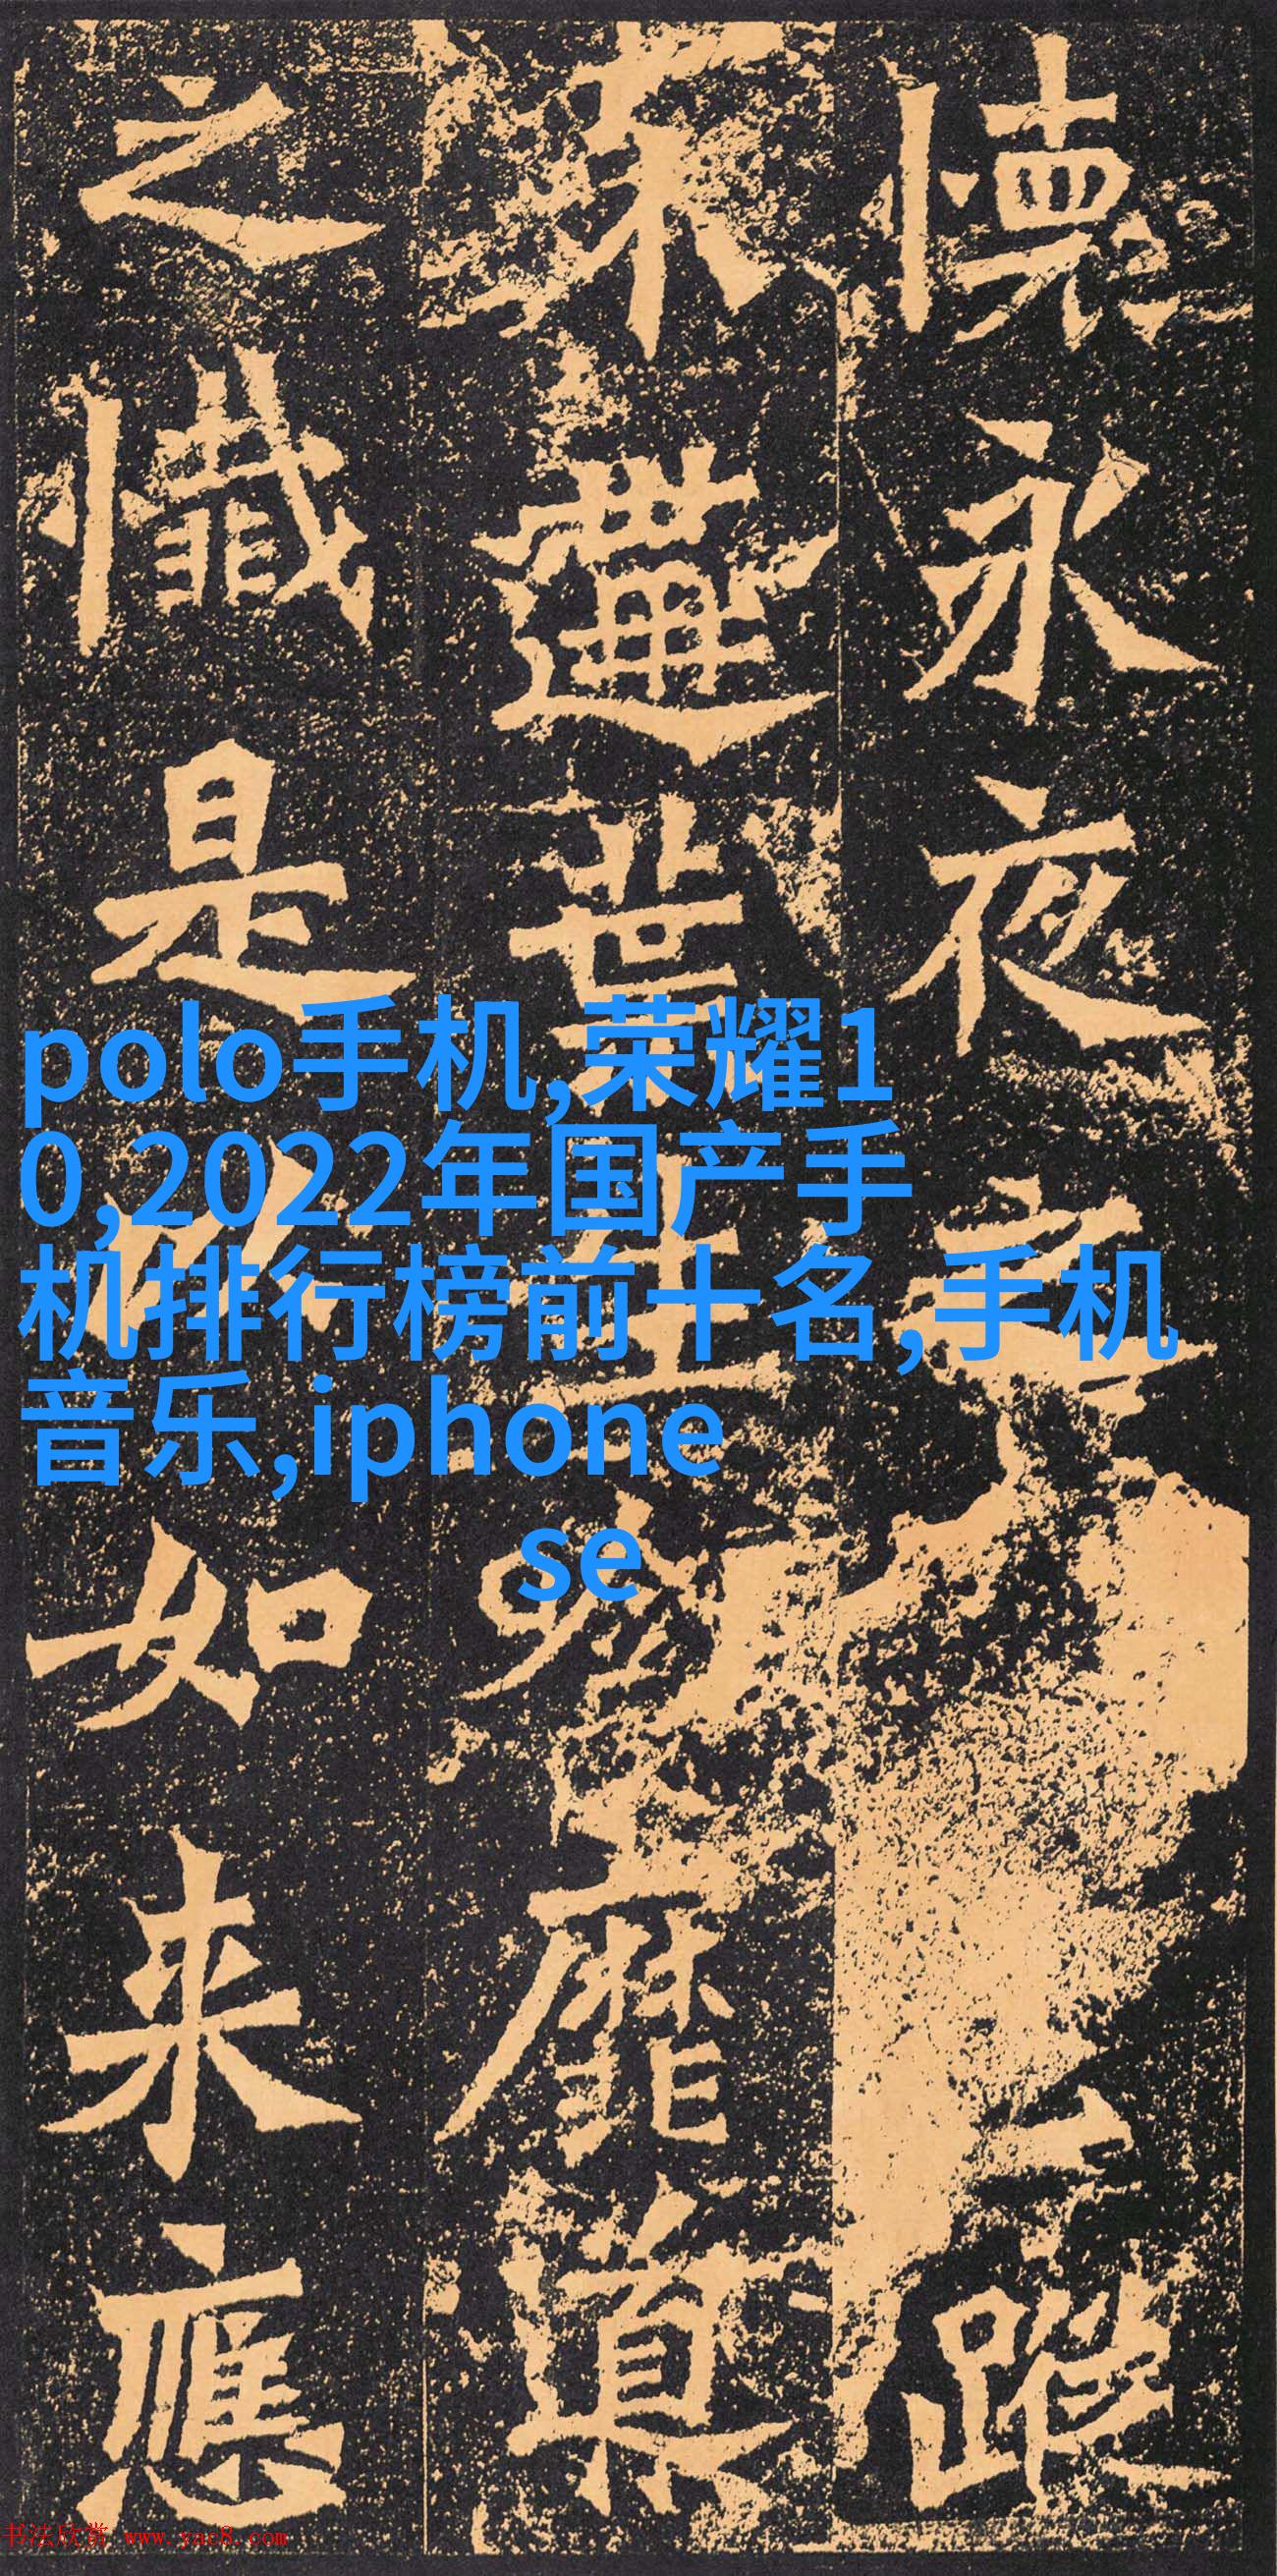 懐永夜之蹤
不遘葉生含靡導
之懺是以如来應
polo手机,荣耀1
0,2022年国产手
机排行榜前十名,手机
音乐,iphone
se
书法欣赏 www.yac8.com